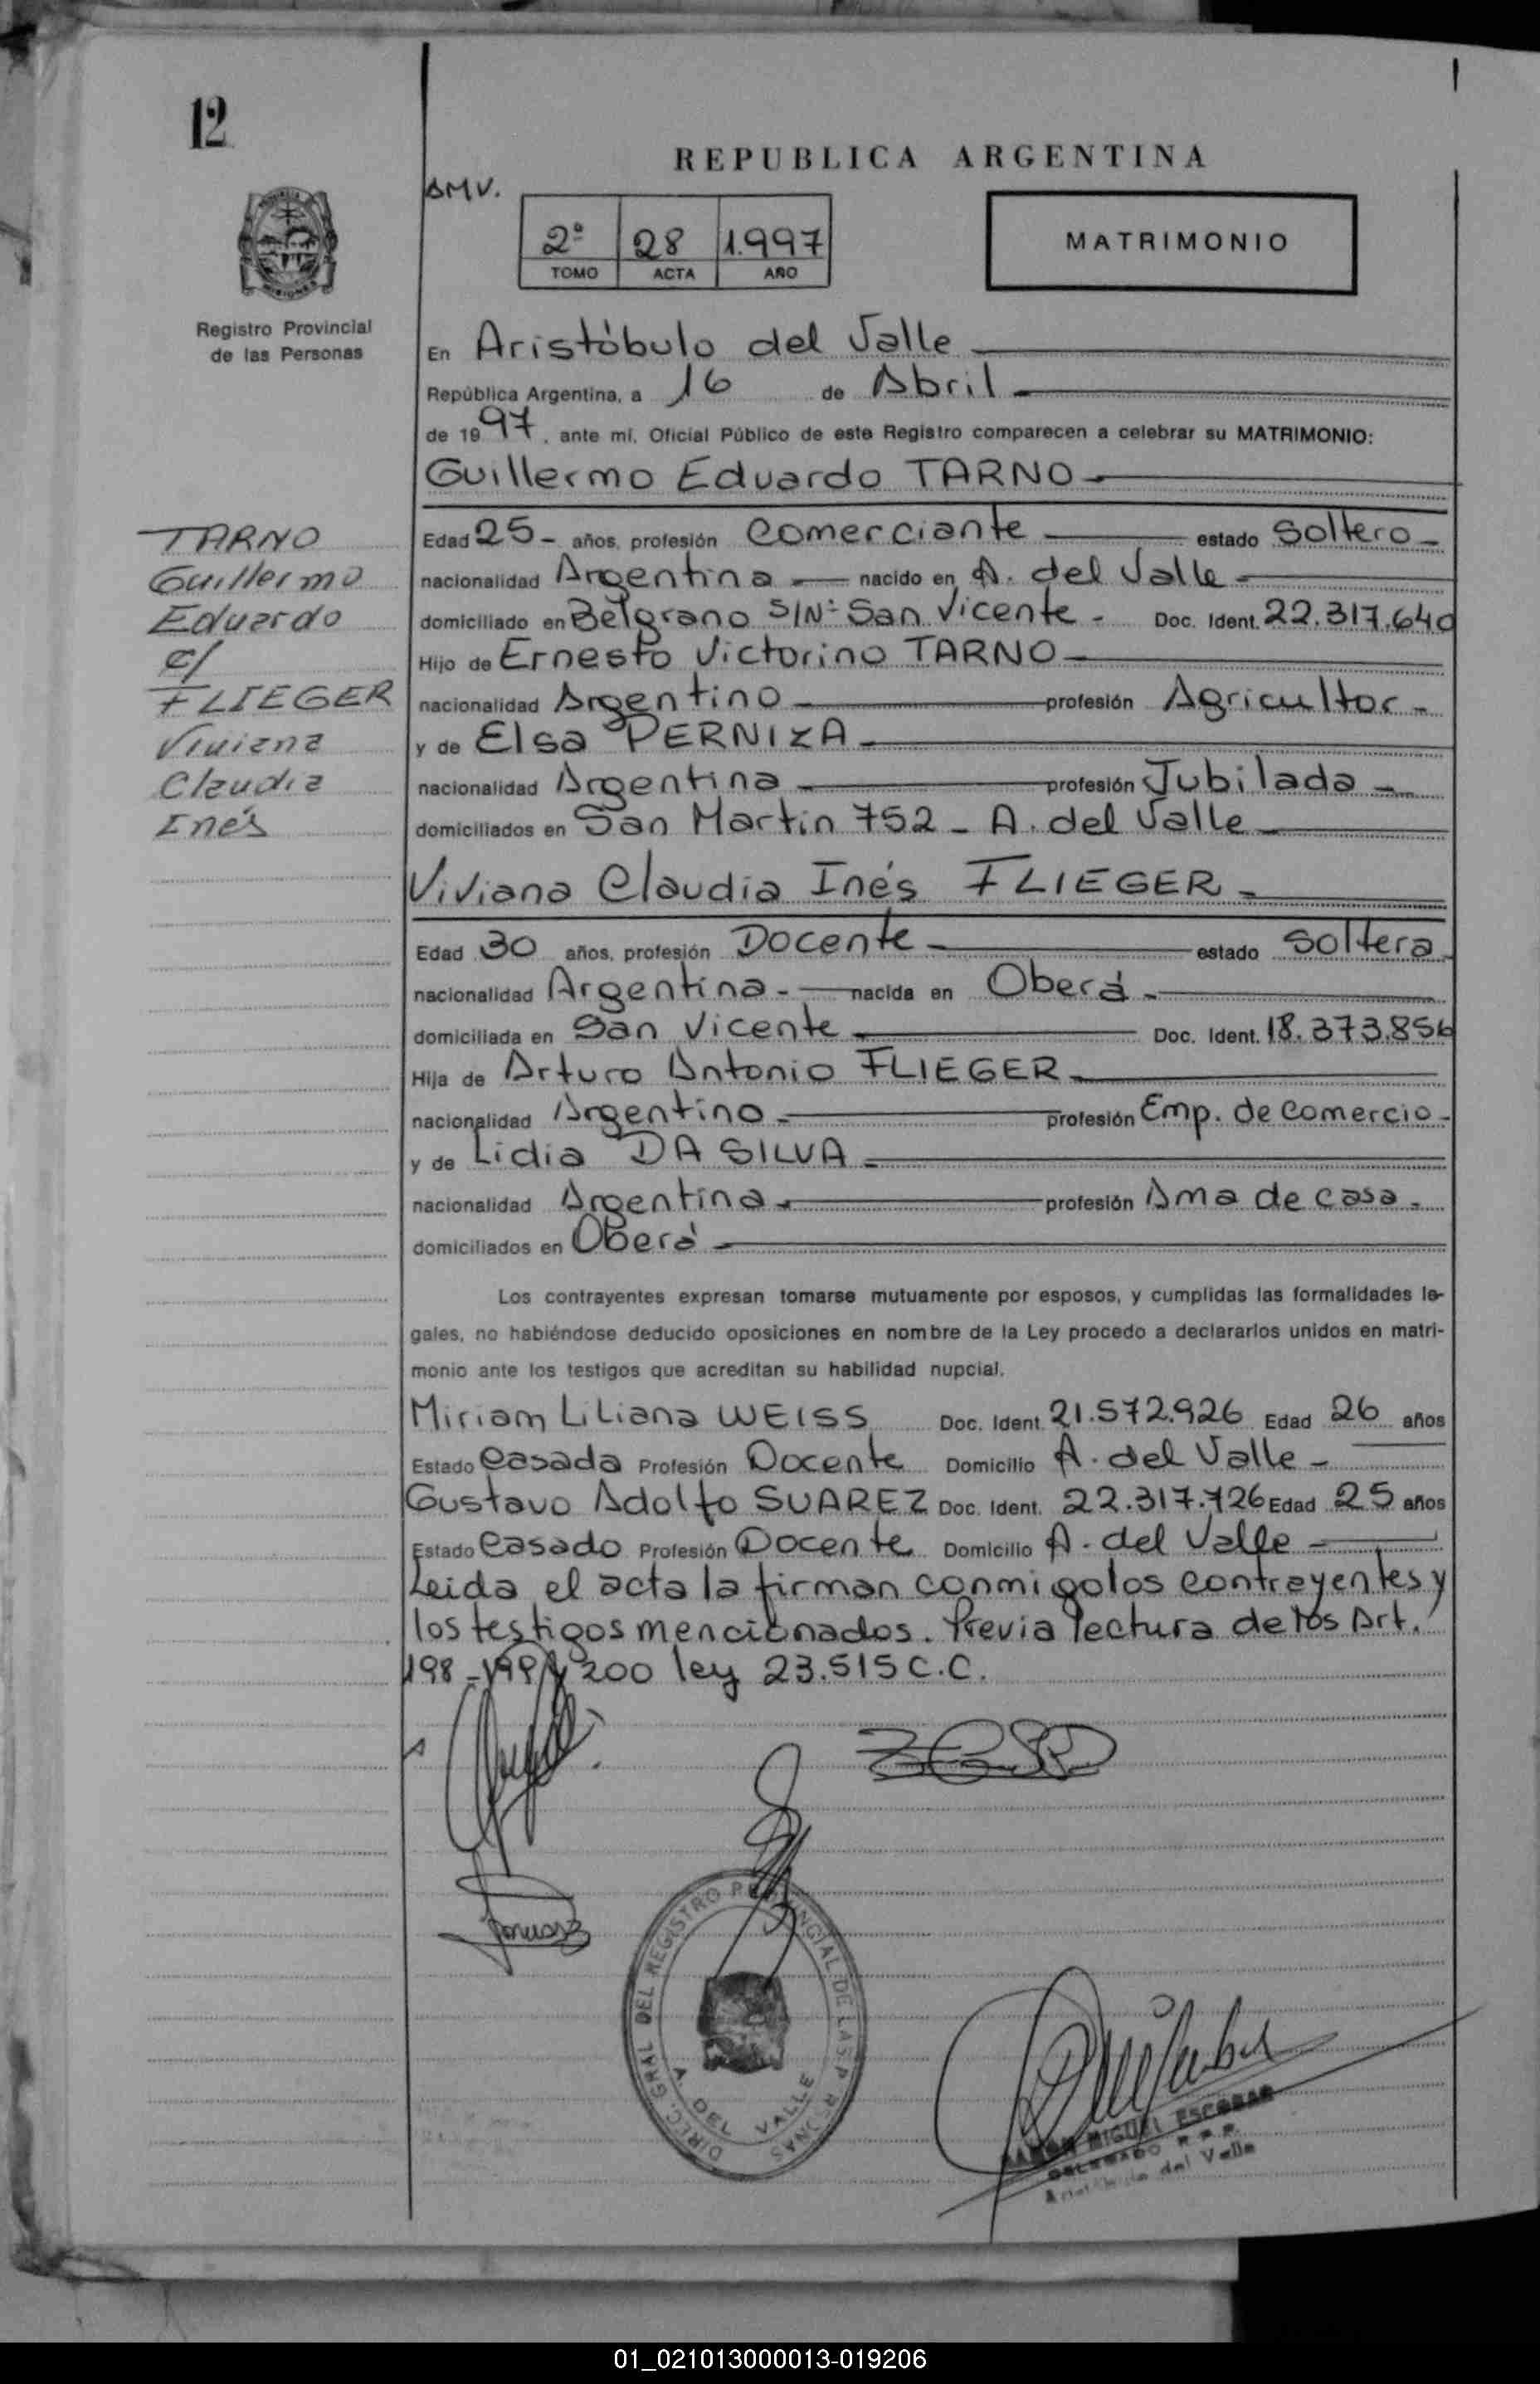 12
REPUBLICA ARGENTINA
AMV.
2º 28 1.997
TOMO ACTA AÑO
MATRIMONIO
Registro Provincial
de las Personas
En Aristóbulo del Valle
República Argentina, a 16 de Abril
de 1997, ante mí, Oficial Público de este Registro comparecen a celebrar su MATRIMONIO:
Guillermo Eduardo TARNO
TARNO
Guillermo
Eduardo
c/
FLIEGER
Viviana
Claudia
Inés
Edad 25- años, profesión Comerciante estado Soltero-
nacionalidad Argentina nacido en A. del Valle-
domiciliado en Belgrano S/Nº San Vicente - Doc. Ident. 22.317.640
Hijo de Ernesto Victorino TARNO
nacionalidad Argentino profesión Agricultor-
y de Elsa PERNIZA
nacionalidad Argentina profesión Jubilada-
domiciliados en San Martin 752 - A. del Valle
Viviana Claudia Inés FLIEGER-
Edad 30 años, profesión Docente estado Soltera
nacionalidad Argentina.- nacida en Oberá-
domiciliada en San Vicente Doc. Ident. 18.373.856
Hija de Arturo Antonio FLIEGER
nacionalidad Argentino profesión Emp. de Comercio-
y de Lidia DA SILVA
nacionalidad Argentina profesión Ama de casa-
domiciliados en Oberá
Los contrayentes expresan tomarse mutuamente por esposos, y cumplidas las formalidades le-
gales, no habiéndose deducido oposiciones en nombre de la Ley procedo a declararlos unidos en matri-
monio ante los testigos que acreditan su habilidad nupcial.
Miriam Liliana WEISS Doc. Ident. 21.572.926 Edad 26 años
Estado Casada Profesión Docente Domicilio A. del Valle-
Gustavo Adolfo SUAREZ Doc. Ident. 22.317.726 Edad 25 años
Estado Casado Profesión Docente Domicilio A. del Valle
Leida el acta la firman conmigo los contrayentes y
los testigos mencionados. Previa lectura de los Art.
198-199 y 200 ley 23.515 C.C.
DIREC. GRAL DEL REGISTRO PROVINCIAL DE LAS PERSONAS
A DEL VALLE
MIGUEL ESCOBAR
DELEGADO R.P.P.
del Valle
01_021013000013-019206